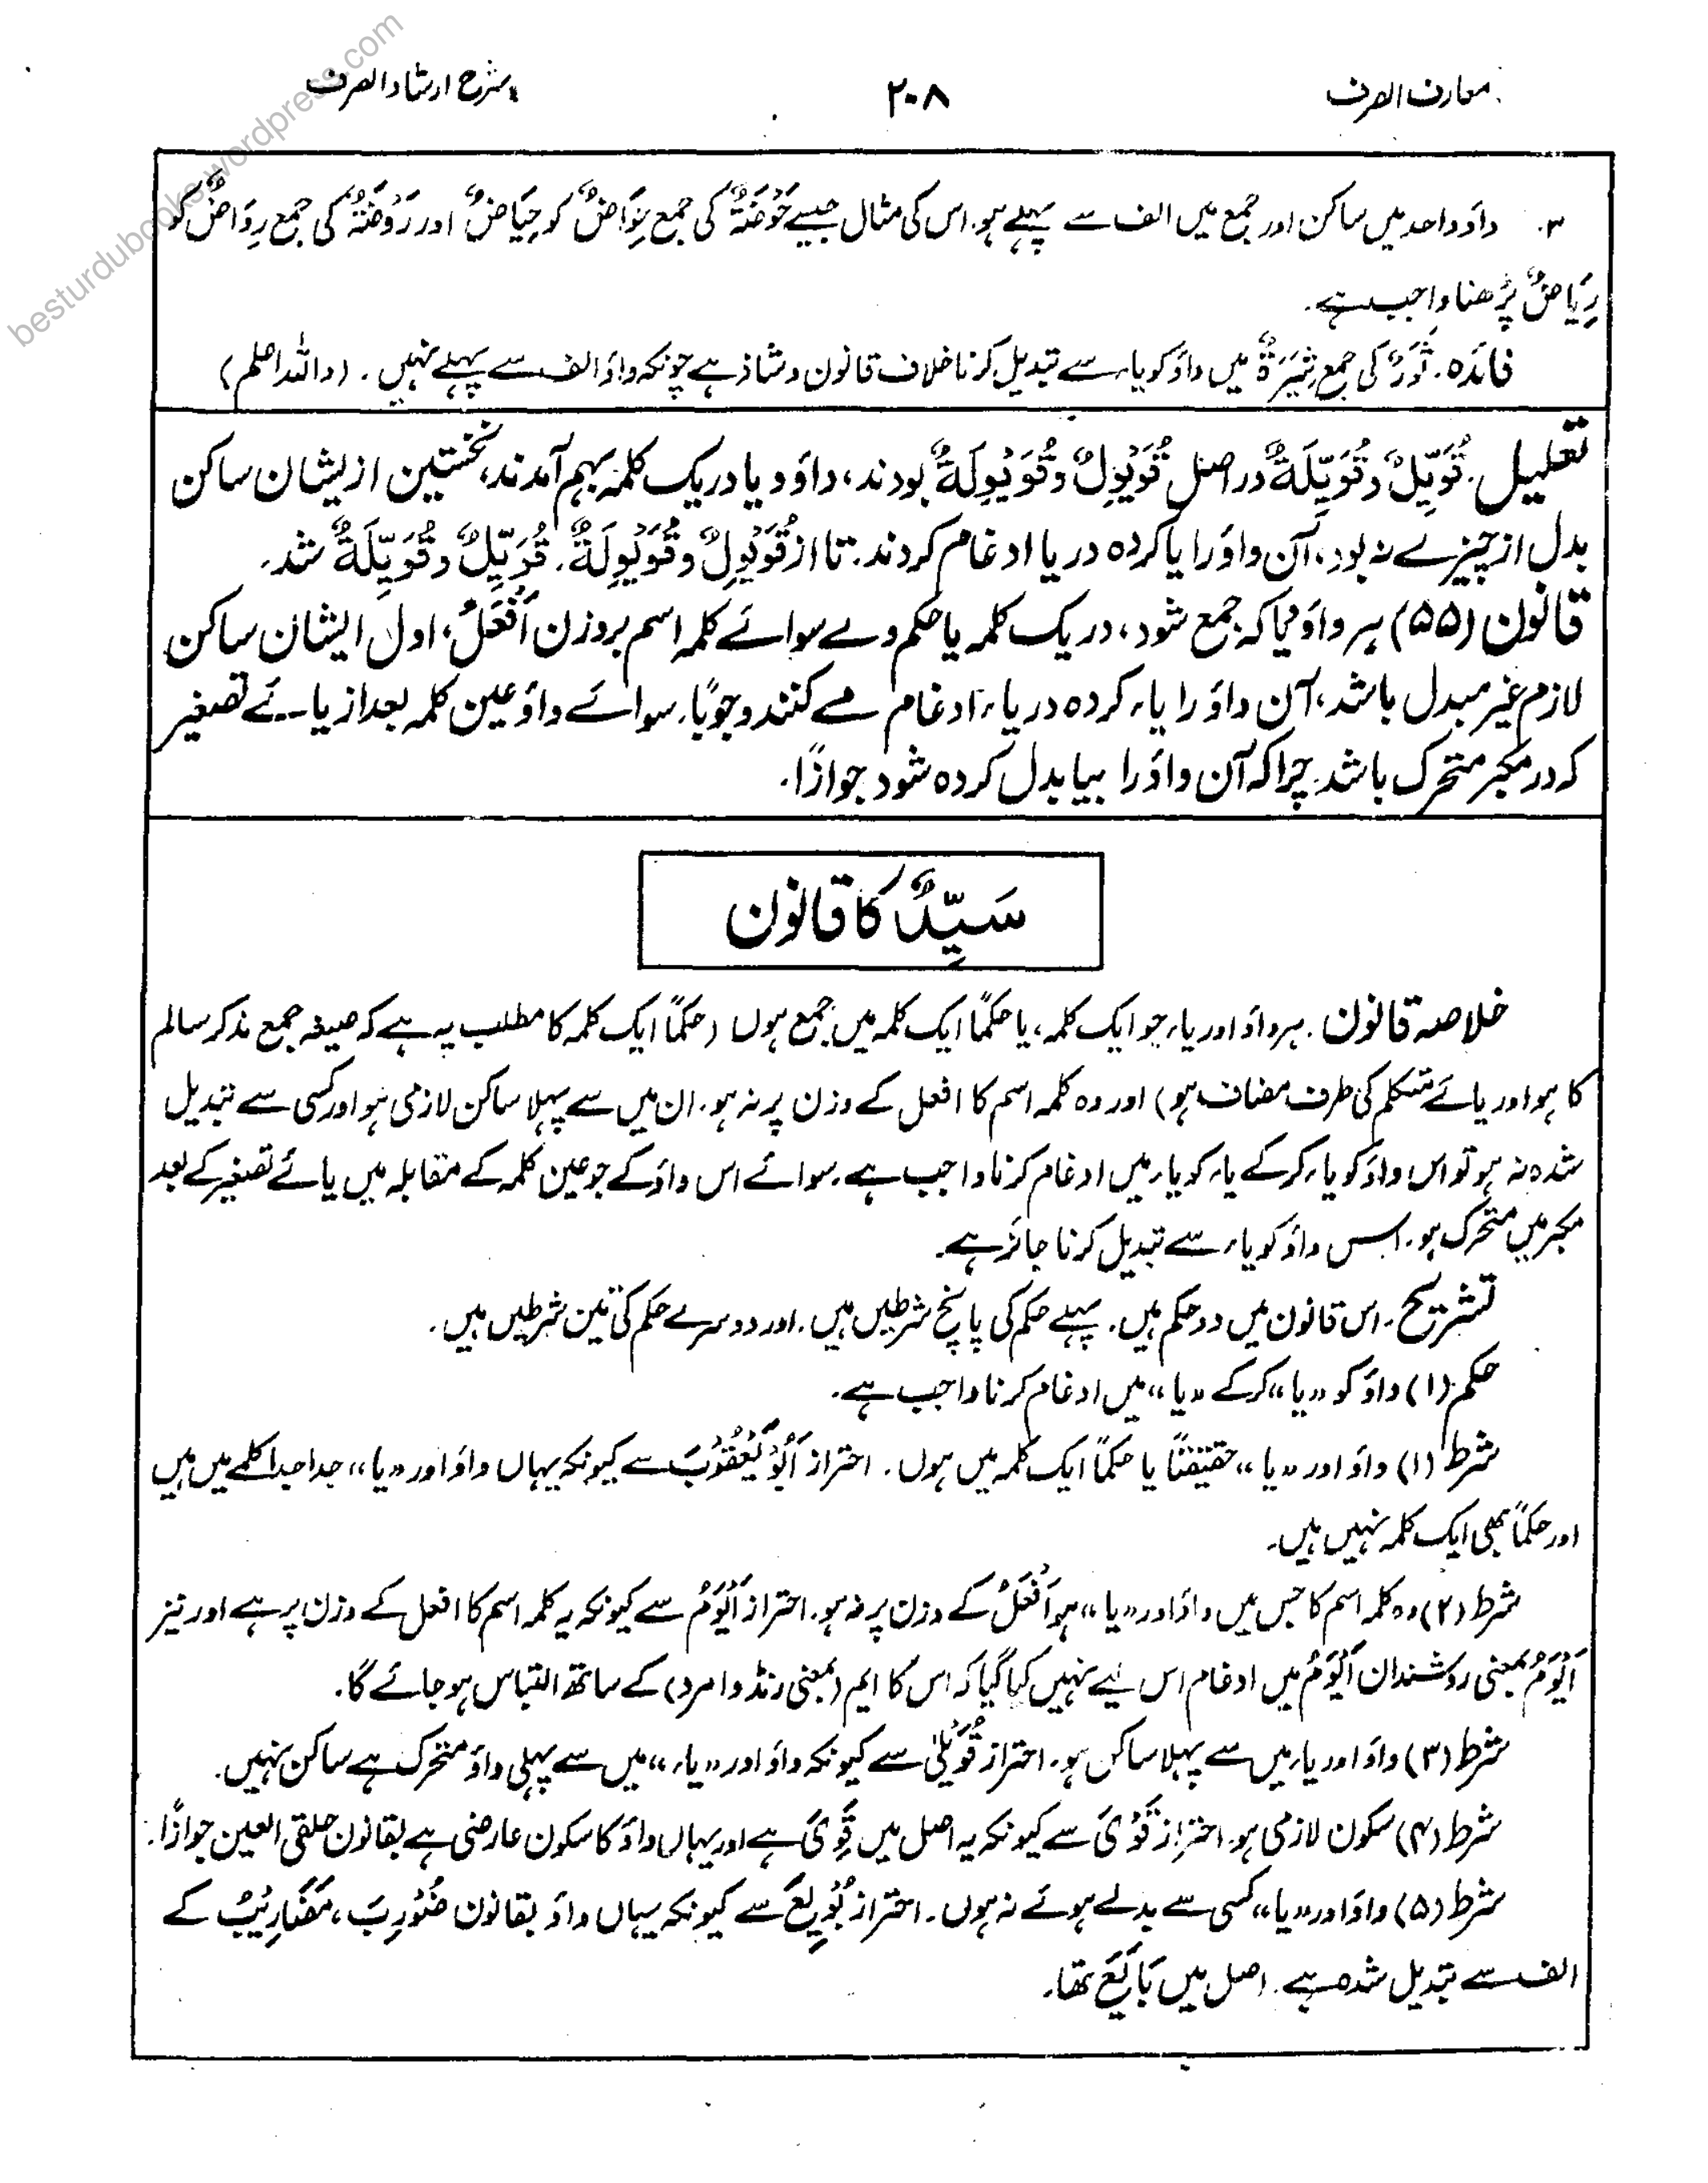 معارف الصرف
۲۰۸
شرح ارشاد الصرف
besturdubooks.wordpress.com
۳. واؤ واحد میں ساکن اور جمع میں الف سے پہلے ہو. اس کی مثال جیسے حَوْضَةٌ کی جمع حِوَاضٌ کو حِيَاضٌ اور رَوْضَةٌ کی جمع رِوَاضٌ کو
رِيَاضٌ پڑھنا واجب ہے.
فائدہ. ثَوْرٌ کی جمع ثِيَرَةٌ میں واؤ کو یاء سے تبدیل کرنا خلاف قانون و شاذ ہے چونکہ واؤ الف سے پہلے نہیں. (واللہ اعلم)
تعلیل. قُوَيِّلٌ و قُوَيِّلَةٌ در اصل قُوَيْوِلٌ و قُوَيْوِلَةٌ بودند، واؤ و یا در یک کلمہ بہم آمدند، نخستین از یشان ساکن
بدل از چیزے نہ بود، آن واؤ را یا کردہ در یا ادغام کردند. تا از قُوَيْوِلٌ و قُوَيْوِلَةٌ. قُوَيِّلٌ و قُوَيِّلَةٌ شد.
قانون (۵۵) ہر واؤ یا کہ جمع شود، در یک کلمہ یا حکم وے سوائے کلمہ اسم بروزن اَفْعَلُ، اول ایشان ساکن
لازم غیر مبدل باشد، آن واؤ را یاء کردہ در یاء ادغام مے کنند وجوبًا. سوائے واؤ عین کلمہ بعد از یائے تصغیر
کہ در مکبر متحرک باشد چرا کہ آن واؤ را بیا بدل کردہ شود جوازًا.
سَيِّدٌ کا قانون
خلاصہ قانون. ہر واؤ اور یاء جو ایک کلمہ، یا حکمًا ایک کلمہ میں جمع ہوں (حکمًا ایک کلمہ کا مطلب یہ ہے کہ صیغہ جمع مذکر سالم
کا ہو اور یائے متکلم کی طرف مضاف ہو) اور وہ کلمہ اسم کا افعل کے وزن پر نہ ہو. ان میں سے پہلا ساکن لازمی ہو اور کسی سے تبدیل
شدہ نہ ہو تو اس واؤ کو یاء کر کے یاء کو یاء میں ادغام کرنا واجب ہے. سوائے اس واؤ کے جو عین کلمہ کے مقابلہ میں یائے تصغیر کے بعد
مکبر میں متحرک ہو. اس واؤ کو یاء سے تبدیل کرنا جائز ہے.
تشریح. اس قانون میں دو حکم ہیں. پہلے حکم کی پانچ شرطیں ہیں. اور دوسرے حکم کی تین شرطیں ہیں.
حکم (۱) واؤ کو ”یا“ کر کے ”یا“ میں ادغام کرنا واجب ہے.
شرط (۱) واؤ اور ”یا“ حقیقتًا یا حکمًا ایک کلمہ میں ہوں. احتراز اَبُوْ يَعْقُوْبَ سے کیونکہ یہاں واؤ اور ”یا“ جدا جدا کلمے میں ہیں
اور حکمًا بھی ایک کلمہ نہیں ہیں.
شرط (۲) وہ کلمہ اسم کا جس میں واؤ اور ”یا“ ہو اَفْعَلُ کے وزن پر نہ ہو. احتراز اَيْوَمُ سے کیونکہ یہ کلمہ اسم کا افعل کے وزن پر ہے اور نیز
اَيْوَمُ بمعنی روشندان اَيْوَمُ میں ادغام اس لیے نہیں کیا گیا کہ اس کا ایم (بمعنی رنڈ وا مرد) کے ساتھ التباس ہو جائے گا.
شرط (۳) واؤ اور یاء میں سے پہلا ساکن ہو. احتراز قُوَيْلٌ سے کیونکہ واؤ اور ”یاء“ میں سے پہلی واؤ متحرک ہے ساکن نہیں.
شرط (۴) سکون لازمی ہو. احتراز قَوْيَ سے کیونکہ یہ اصل میں قَوِيَ ہے اور یہاں واؤ کا سکون عارضی ہے بقانون حلقی العین جوازًا.
شرط (۵) واؤ اور ”یا“ کسی سے بدلے ہوئے نہ ہوں. احتراز بُوْيِعَ سے کیونکہ یہاں واؤ بقانون ضُوْرِبَ، مَضَارِيْبُ کے
الف سے تبدیل شدہ ہے. اصل میں بَايَعَ تھا.